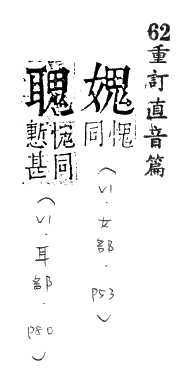 62重訂直音篇
媿
同愧
（VI·女部·P53）
聭
愧同
慙甚
（VI·耳部·P80）